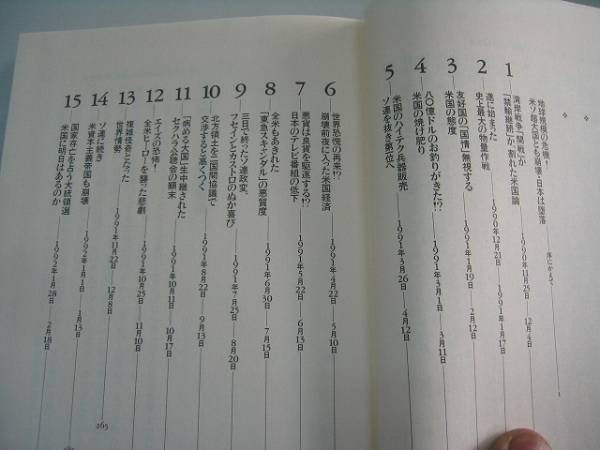 地球規模の危機!
米ソ超大国とも崩壊・日本は堕落
序にかえて
1
湾岸戦争「開戦」か
「禁輸継続」か、割れた米国論
1990年11月25日
12月4日
2
遂に始まった
史上最大の物量作戦
1990年12月21日
1991年1月17日
3
友好国の「国情」無視する
米国の態度
1991年1月19日
2月12日
4
八〇億ドルのお釣りがきた!?
米国の焼け肥り
1991年3月1日
3月11日
5
米国のハイテク兵器販売
ソ連を抜き第一位へ
1991年3月26日
4月12日
6
世界恐慌の再来!?
崩壊前夜に入った米国経済
1991年4月22日
5月10日
7
悪貨は良貨を駆逐する!?
日本のテレビ番組の低下
1991年5月22日
6月13日
8
全米もあきれた
「東急スキャンダル」の悪質度
1991年6月30日
7月15日
9
三日で終ったソ連政変、
フセインとカストロのぬか喜び
1991年7月25日
8月20日
10
北方領土を二国間協議で
交渉すると高くつく
1991年8月22日
9月13日
11
「病める大国」生中継された
セクハラ公聴会の顛末
1991年10月11日
10月17日
12
エイズの恐怖!
全米ヒーローを襲った悲劇
1991年10月25日
11月10日
13
複雑怪奇となった
世界情勢
1991年11月22日
12月8日
14
ソ連に続き
米資本主義帝国も崩壊
1992年1月1日
1月13日
265
15
国家存亡を占う大統領選
米国に明日はあるのか
1992年1月28日
2月18日